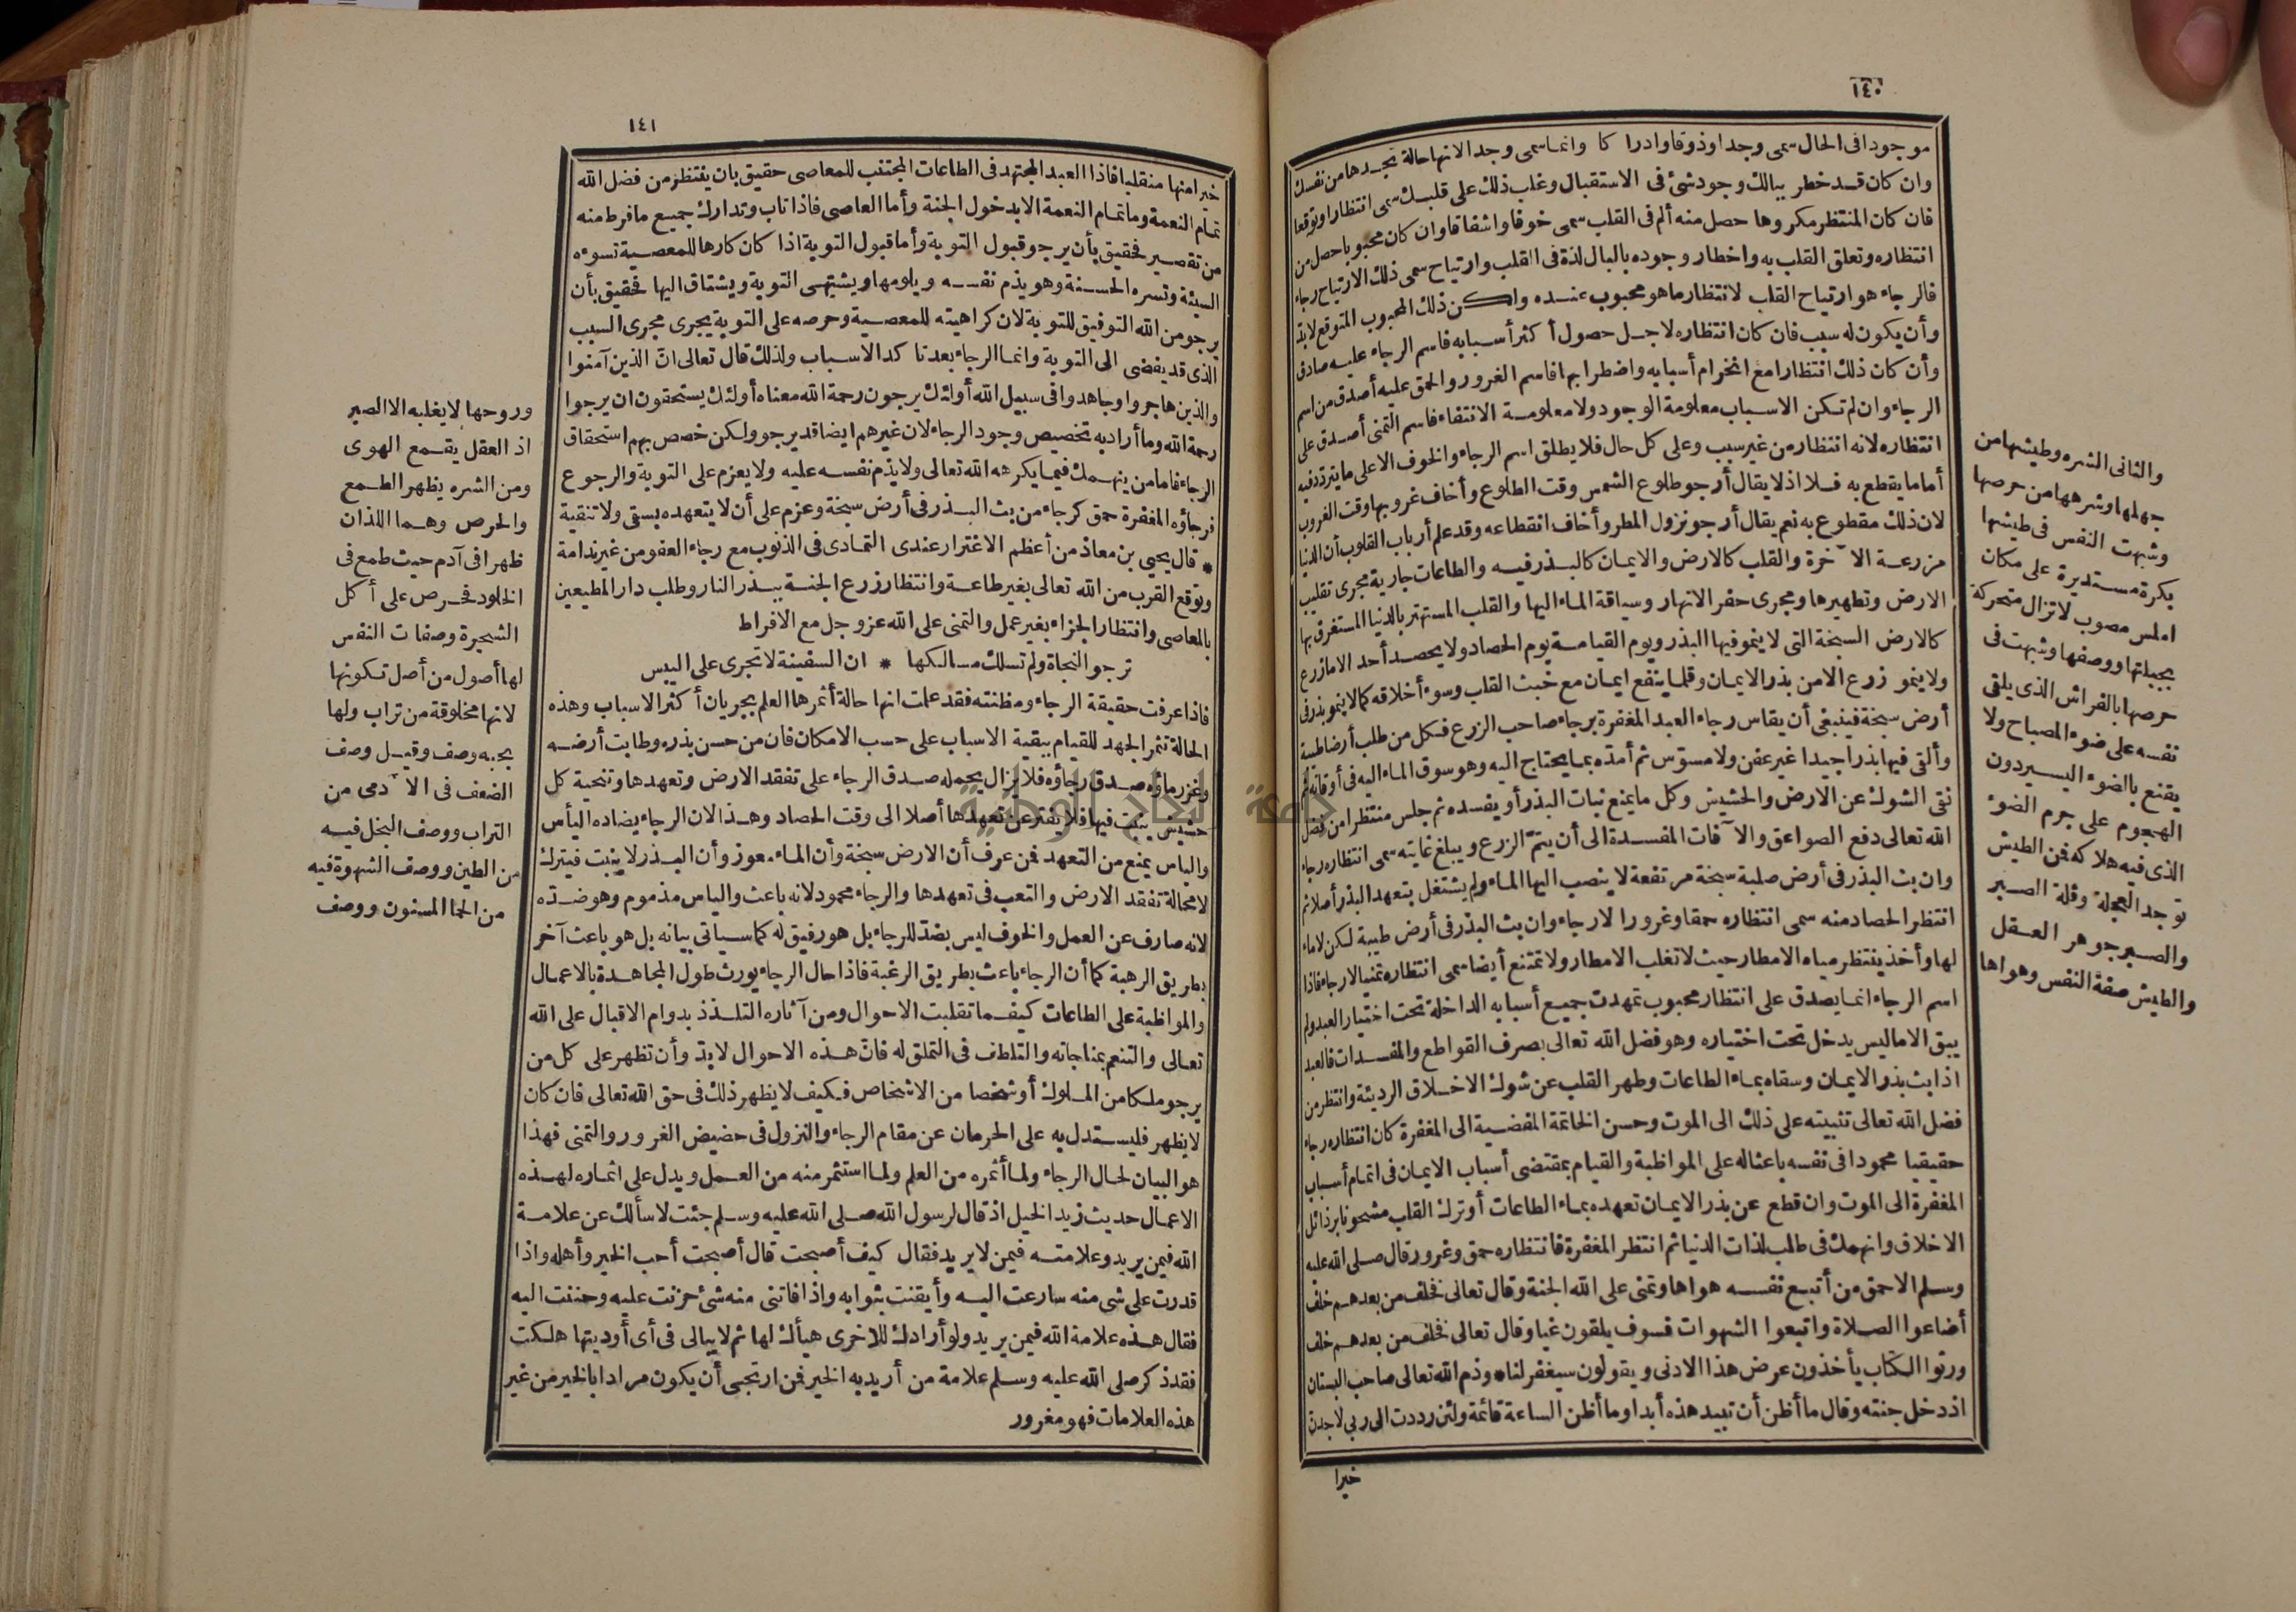 ١٤٠
موجودا فى الحال سمى وجدا وذوقا وادراكا وانما سمى وجدا لانها حالة يجدها من نفسك
وان كان قد خطر ببالك وجود شئ فى الاستقبال وغلب ذلك على قلبك سمى انتظارا وتوقعا
فان كان المنتظر مكروها حصل منه ألم فى القلب سمى خوفا واشفاقا وان كان محبوبا حصل من
انتظاره وتعلق القلب به واخطار وجوده بالبال لذة فى القلب وارتياح سمى ذلك الارتياح رجاء
فالرجاء هو ارتياح القلب لانتظار ما هو محبوب عنده ولكن ذلك المحبوب المتوقع لابد
وأن يكون له سبب فان كان انتظاره لاجل حصول أكثر أسبابه فاسم الرجاء عليه صادق
وأن كان ذلك انتظارا مع انخرام أسبابه واضطرابها فاسم الغرور والحمق عليه أصدق من اسم
الرجاء وان لم تكن الاسباب معلومة الوجود ولا معلومة الانتفاء فاسم التمنى أصدق على
انتظاره لانه انتظار من غير سبب وعلى كل حال فلا يطلق اسم الرجاء والخوف الا على ما يتردد فيه
أما ما يقطع به فلا اذ لا يقال أرجو طلوع الشمس وقت الطلوع وأخاف غروبها وقت الغروب
لان ذلك مقطوع به نعم يقال أرجو نزول المطر وأخاف انقطاعه وقد علم أرباب القلوب أن الدنيا
مزرعة الآخرة والقلب كالارض والايمان كالبذر فيه والطاعات جارية مجرى تقليب
الارض وتطهيرها ومجرى حفر الانهار وسياقة الماء اليها والقلب المستهتر بالدنيا المستغرق بها
كالارض السبخة التى لا ينمو فيها البذر ويوم القيامة يوم الحصاد ولا يحصد أحد الا ما زرع
ولا ينمو زرع الا من بذر الايمان وقلما ينفع ايمان مع خبث القلب وسوء أخلاقه كما لا ينمو بذر فى
أرض سبخة فينبغى أن يقاس رجاء العبد المغفرة برجاء صاحب الزرع فكل من طلب أرضا طيبة
وألقى فيها بذرا جيدا غير عفن ولا مسوس ثم أمده بما يحتاج اليه وهو سوق الماء اليه فى أوقاته ثم
نقى الشوك عن الارض والحشيش وكل ما يمنع نبات البذر أو يفسده ثم جلس منتظرا من فضل
الله تعالى دفع الصواعق والآفات المفسدة الى أن يتم الزرع ويبلغ غايته سمى انتظاره رجاء
وان بث البذر فى أرض صلبة سبخة مرتفعة لا ينصب اليها الماء ولم يشتغل بتعهد البذر أصلا ثم
انتظر الحصاد منه سمى انتظاره حمقا وغرورا لا رجاء وان بث البذر فى أرض طيبة لكن لا ماء
لها وأخذ ينتظر مياه الامطار حيث لا تغلب الامطار ولا تمتنع أيضا سمى انتظاره تمنيا لا رجاء فاذا
اسم الرجاء انما يصدق على انتظار محبوب تمهدت جميع أسبابه الداخلة تحت اختيار العبد ولم
يبق الا ما ليس يدخل تحت اختياره وهو فضل الله تعالى بصرف القواطع والمفسدات فالعبد
اذا بث بذر الايمان وسقاه بماء الطاعات وطهر القلب عن شوك الاخلاق الرديئة وانتظر من
فضل الله تعالى تثبيته على ذلك الى الموت وحسن الخاتمة المفضية الى المغفرة كان انتظاره رجاء
حقيقيا محمودا فى نفسه باعثا له على المواظبة والقيام بمقتضى أسباب الايمان فى اتمام أسباب
المغفرة الى الموت وان قطع عن بذر الايمان تعهده بماء الطاعات أو ترك القلب مشحونا برذائل
الاخلاق وانهمك فى طلب لذات الدنيا ثم انتظر المغفرة فانتظاره حمق وغرور قال صلى الله عليه
وسلم الاحمق من أتبع نفسه هواها وتمنى على الله الجنة وقال تعالى فخلف من بعدهم خلف
أضاعوا الصلاة واتبعوا الشهوات فسوف يلقون غيا وقال تعالى فخلف من بعدهم خلف
ورثوا الكتاب يأخذون عرض هذا الادنى ويقولون سيغفر لنا وذم الله تعالى صاحب البستان
اذ دخل جنته وقال ما أظن أن تبيد هذه أبدا وما أظن الساعة قائمة ولئن رددت الى ربى لاجدن
خيرا
والثانى الشره وطيشها من
جهلها وشرهها من حرصها
وشبهت النفس فى طيشها
بكرة مستديرة على مكان
املس مصوب لا تزال متحركة
بجبلتها ووصفها وشبهت فى
حرصها بالفراش الذى يلقى
نفسه على ضوء المصباح ولا
يقنع بالضوء اليسير دون
الهجوم على جرم الضوء
الذى فيه هلاكه فمن الطيش
توجد العجلة وقلة الصبر
والصبر جوهر العقل
والطيش صفة النفس وهواها
١٤١
خيرا منها منقلبا فاذا العبد المجتهد فى الطاعات المجتنب للمعاصى حقيق بان ينتظر من فضل الله
تمام النعمة وما تمام النعمة الا بدخول الجنة وأما العاصى فاذا تاب وتدارك جميع ما فرط منه
من تقصير فحقيق بأن يرجو قبول التوبة وأما قبول التوبة اذا كان كارها للمعصية تسوءه
السيئة وتسره الحسنة وهو يذم نفسه ويلومها ويشتهى التوبة ويشتاق اليها فحقيق بأن
يرجو من الله التوفيق للتوبة لان كراهيته للمعصية وحرصه على التوبة يجرى مجرى السبب
الذى قد يفضى الى التوبة وانما الرجاء بعد تأكد الاسباب ولذلك قال تعالى ان الذين آمنوا
والذين هاجروا وجاهدوا فى سبيل الله أولئك يرجون رحمة الله معناه أولئك يستحقون ان يرجوا
رحمة الله وما أراد به تخصيص وجود الرجاء لان غيرهم ايضا قد يرجو ولكن خصص بهم استحقاق
الرجاء فاما من ينهمك فيما يكرهه الله تعالى ولا يذم نفسه عليه ولا يعزم على التوبة والرجوع
فرجاؤه المغفرة حمق كرجاء من بث البذر فى أرض سبخة وعزم على أن لا يتعهده بسقى ولا تنقية
* قال يحيى بن معاذ من أعظم الاغترار عندى التمادى فى الذنوب مع رجاء العفو من غير ندامة
وتوقع القرب من الله تعالى بغير طاعة وانتظار زرع الجنة ببذر النار وطلب دار المطيعين
بالمعاصى وانتظار الجزاء بغير عمل والتمنى على الله عز وجل مع الافراط
ترجو النجاة ولم تسلك مسالكها * ان السفينة لا تجرى على اليبس
فاذا عرفت حقيقة الرجاء ومظنته فقد علمت انها حالة أثمرها العلم بجريان أكثر الاسباب وهذه
الحالة تثمر الجهد للقيام ببقية الاسباب على حسب الامكان فان من حسن بذره وطابت أرضه
وغزر ماؤه صدق رجاؤه فلا يزال يحمله صدق الرجاء على تفقد الارض وتعهدها وتنحية كل
حشيش ينبت فيها فلا يفتر عن تعهدها أصلا الى وقت الحصاد وهذا لان الرجاء يضاده اليأس
والياس يمنع من التعهد فمن عرف أن الارض سبخة وأن الماء معوز وأن البذر لا ينبت فيترك
لا محالة تفقد الارض والتعب فى تعهدها والرجاء محمود لانه باعث والياس مذموم وهو ضده
لانه صارف عن العمل والخوف ليس بضد للرجاء بل هو رفيق له كما سياتى بيانه بل هو باعث آخر
بطريق الرهبة كما أن الرجاء باعث بطريق الرغبة فاذا حال الرجاء يورث طول المجاهدة بالاعمال
والمواظبة على الطاعات كيفما تقلبت الاحوال ومن آثاره التلذذ بدوام الاقبال على الله
تعالى والتنعم بمناجاته والتلطف فى التملق له فان هذه الاحوال لابد وأن تظهر على كل من
يرجو ملكا من الملوك أو شخصا من الاشخاص فكيف لا يظهر ذلك فى حق الله تعالى فان كان
لا يظهر فليستدل به على الحرمان عن مقام الرجاء والنزول فى حضيض الغرور والتمنى فهذا
هو البيان لحال الرجاء ولما أثمره من العلم ولما استثمر منه من العمل ويدل على اثماره لهذه
الاعمال حديث زيد الخيل اذ قال لرسول الله صلى الله عليه وسلم جئت لاسألك عن علامة
الله فيمن يريد وعلامته فيمن لا يريد فقال كيف أصبحت قال أصبحت أحب الخير وأهله واذا
قدرت على شئ منه سارعت اليه وأيقنت بثوابه واذا فاتنى منه شئ حزنت عليه وحننت اليه
فقال هذه علامة الله فيمن يريد ولو أرادك للاخرى هيأك لها ثم لا يبالى فى أى أوديتها هلكت
فقد ذكر صلى الله عليه وسلم علامة من أريد به الخير فمن ارتجى أن يكون مرادا بالخير من غير
هذه العلامات فهو مغرور
وروحها لا يغلبه الا الصبر
اذ العقل يقمع الهوى
ومن الشره يظهر الطمع
والحرص وهما اللذان
ظهرا فى آدم حيث طمع فى
الخلود فحرص على أكل
الشجرة وصفات النفس
لها أصول من أصل تكونها
لانها مخلوقة من تراب ولها
بحبه وصف وقيل وصف
الضعف فى الآدمى من
التراب ووصف البخل فيه
من الطين ووصف الشهوة فيه
من الحمأ المسنون ووصف
جامعة النجاح الوطنية